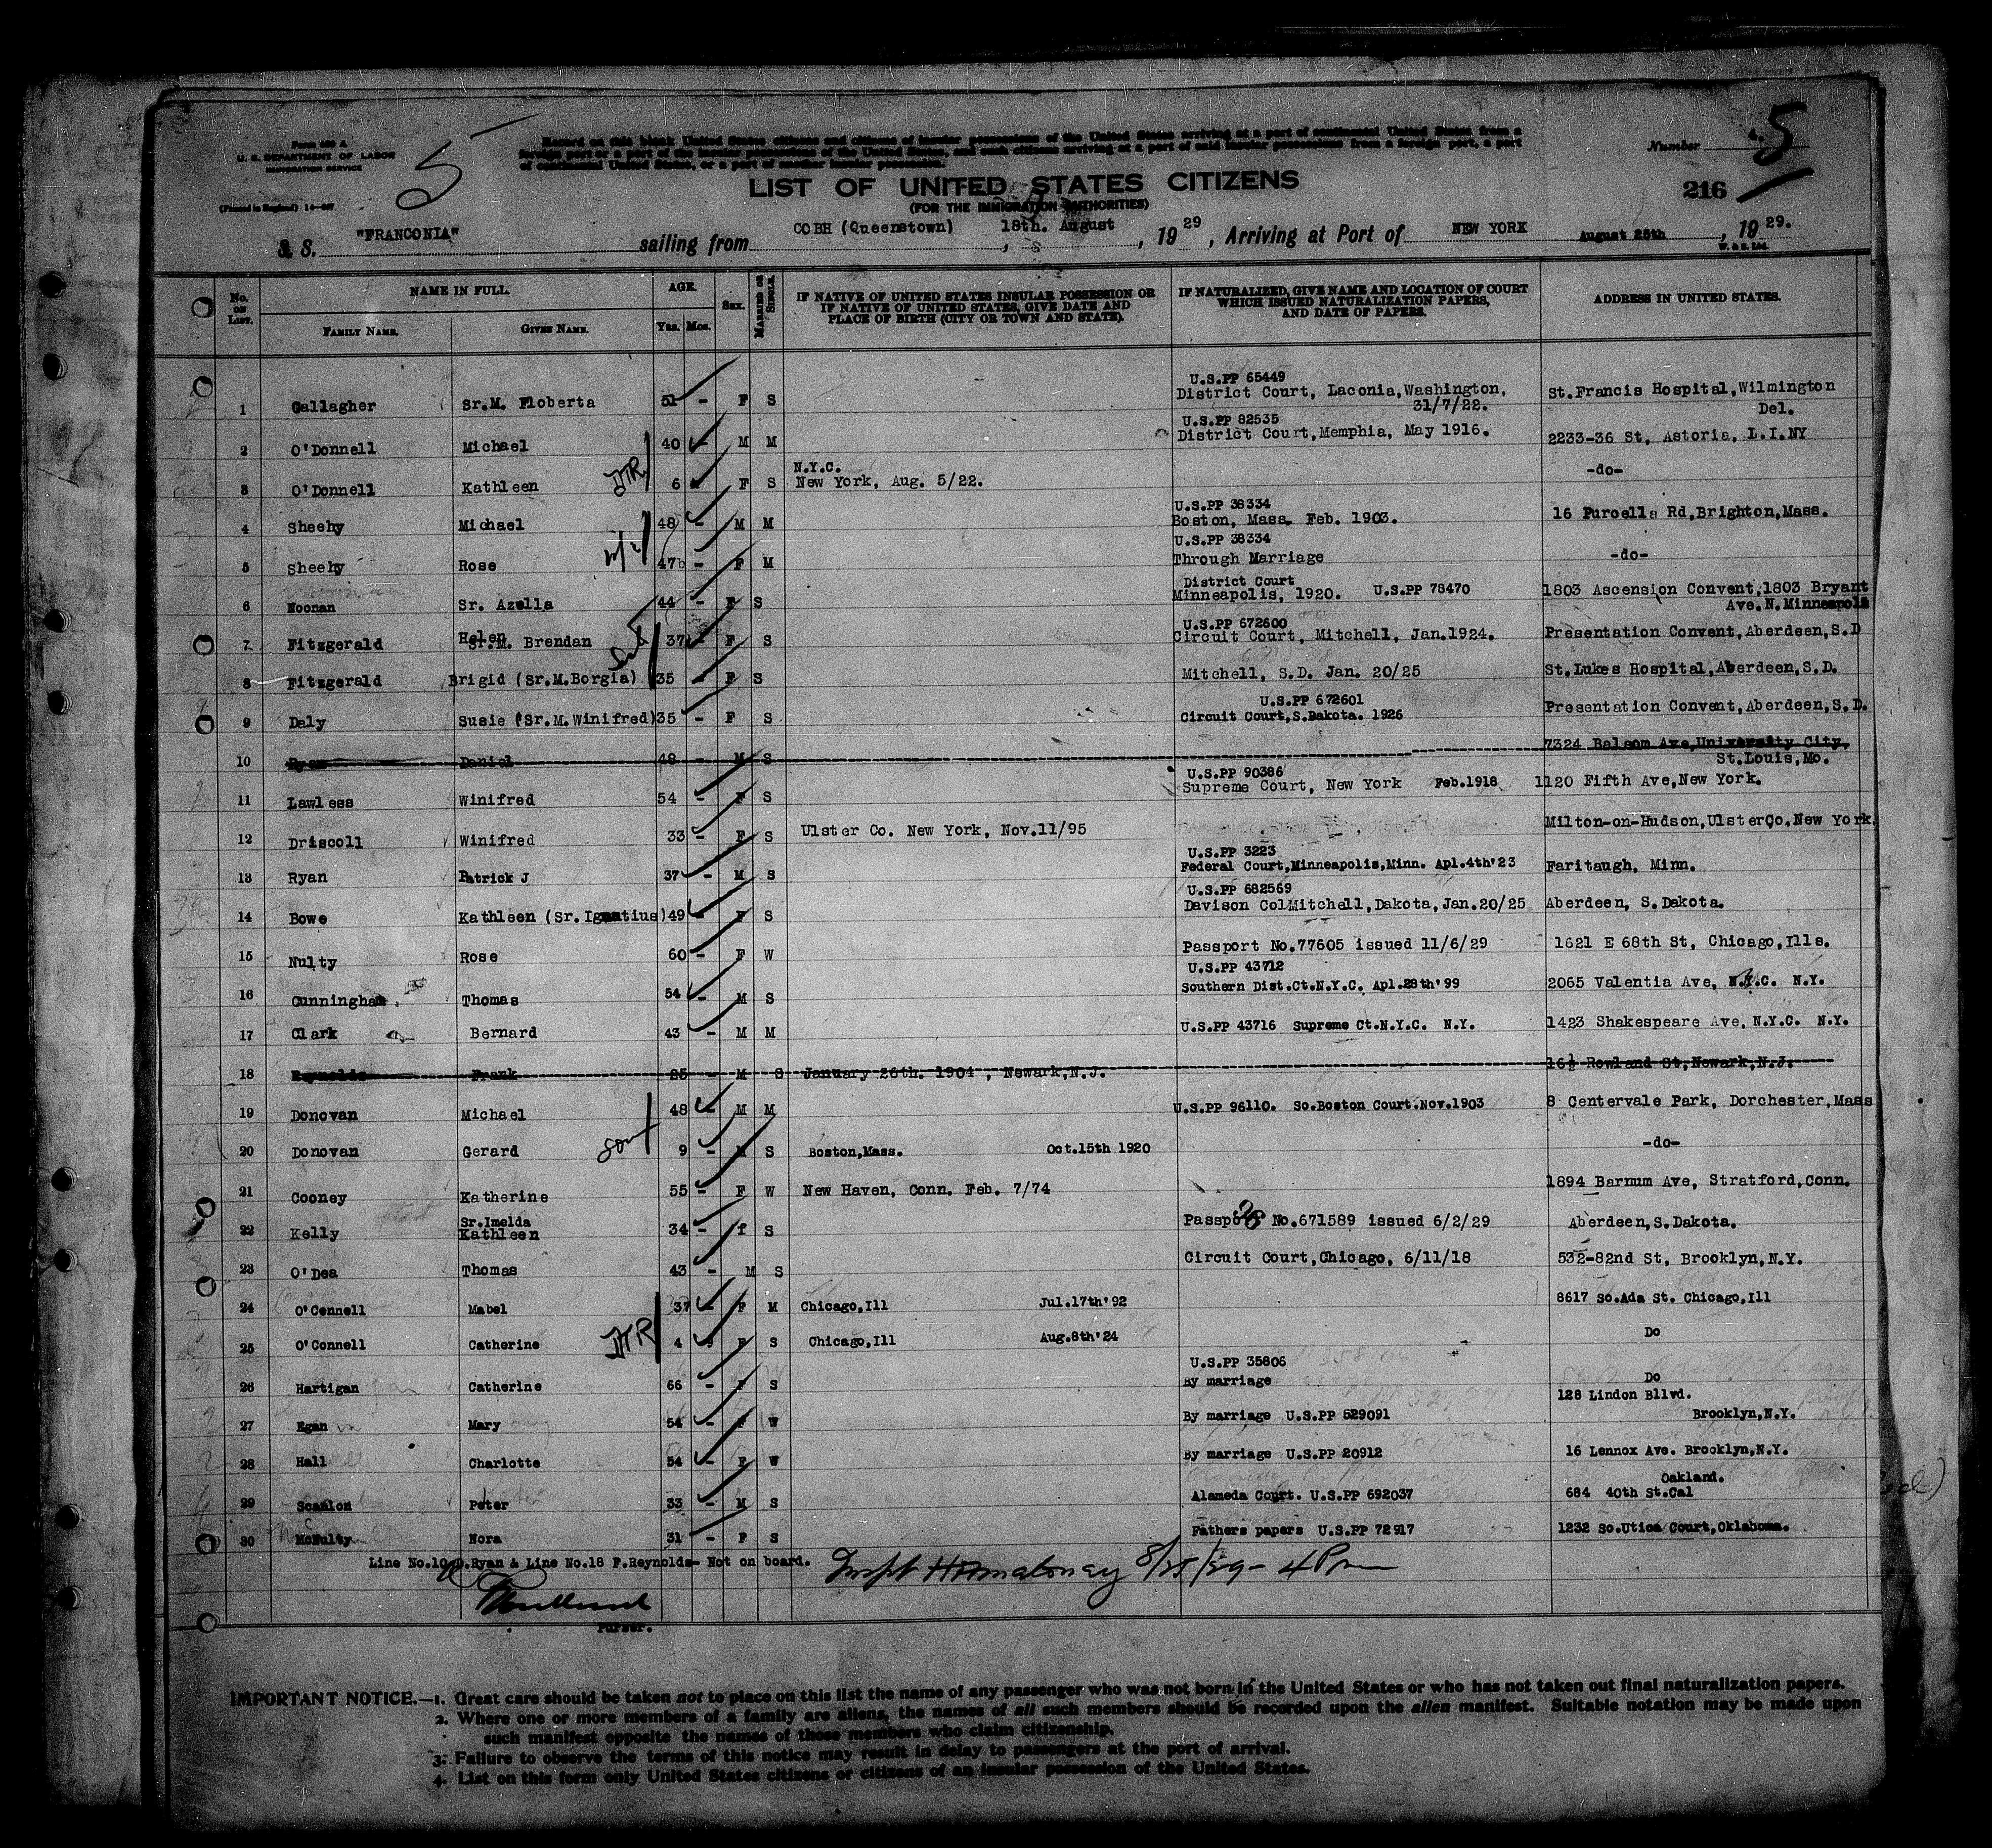 Form 630 A
U. S. DEPARTMENT OF LABOR
IMMIGRATION SERVICE
(Printed in England) 14—
5
Record on this blank United States citizens and citizens of insular possessions of the United States arriving at a port of continental United States from a
foreign port or a port of the insular possessions of the United States, and such citizens arriving at a port of said insular possessions from a foreign port, a port
of continental United States, or a port of another insular possession.
Number 4. 5
LIST OF UNITED STATES CITIZENS
(FOR THE IMMIGRATION AUTHORITIES)
216
S. S. "FRANCONIA" sailing from COBH (Queenstown) 18th. August, 1929, Arriving at Port of NEW YORK August 25th, 1929.
No. ON LIST. NAME IN FULL. AGE. SEX. MARRIED OR SINGLE. IF NATIVE OF UNITED STATES INSULAR POSSESSION OR IF NATIVE OF UNITED STATES, GIVE DATE AND PLACE OF BIRTH (CITY OR TOWN AND STATE). IF NATURALIZED, GIVE NAME AND LOCATION OF COURT WHICH ISSUED NATURALIZATION PAPERS, AND DATE OF PAPERS. ADDRESS IN UNITED STATES.
FAMILY NAME. GIVEN NAME. Yrs. Mos.
U.S.PP 65449
1 Gallagher Sr.M. Floberta 51 - F S District Court, Laconia,Washington, 31/7/22. St.Francis Hospital,Wilmington Del.
U.S.PP 82535
2 O'Donnell Michael 40 - M M District Court,Memphia, May 1916. 2233-36 St, Astoria, L.I.NY
N.Y.C.
3 O'Donnell Kathleen 6 F S New York, Aug. 5/22. -do-
U.S.PP 38334
4 Sheehy Michael 48 - M M Boston, Mass. Feb. 1903. 16 Purcells Rd,Brighton,Mass.
U.S.PP 38334
5 Sheehy Rose 47 - F M Through Marriage -do-
District Court
6 Noonan Sr. Azella 44 - F S Minneapolis, 1920. U.S.PP 78470 1803 Ascension Convent,1803 Bryant Ave.N.Minneapolis
Helen U.S.PP 672600
7 Fitzgerald Sr.M. Brendan 37 - F S Circuit Court, Mitchell, Jan.1924. Presentation Convent,Aberdeen,S.D
8 Fitzgerald Brigid (Sr.M.Borgia) 35 - F S Mitchell, S.D. Jan. 20/25 St.Lukes Hospital,Aberdeen,S.D.
U.S.PP 672601
9 Daly Susie (Sr.M.Winifred) 35 - F S Circuit Court,S.Dakota. 1926 Presentation Convent,Aberdeen,S.D.
10 Ryan Daniel 48 - M S 7324 Balsom Ave,University City, St.Louis,Mo.
U.S.PP 90386
11 Lawless Winifred 54 - F S Supreme Court, New York Feb.1918 1120 Fifth Ave,New York.
12 Driscoll Winifred 33 - F S Ulster Co. New York, Nov.11/95 Milton-on-Hudson,UlsterCo.New York.
U.S.PP 3223
13 Ryan Patrick J 37 - M S Federal Court,Minneapolis,Minn. Apl.4th'23 Faritaugh, Minn.
U.S.PP 682569
14 Bowe Kathleen (Sr. Ignatius) 49 - F S Davison ColMitchell,Dakota,Jan.20/25 Aberdeen, S.Dakota.
15 Nulty Rose 60 - F W Passport No.77605 issued 11/6/29 1621 E 68th St, Chicago,Ills.
U.S.PP 43712
16 Cunningham. Thomas 54 - M S Southern Dist.Ct.N.Y.C. Apl.28th'99 2065 Valentia Ave, N.Y.C. N.Y.
17 Clark Bernard 43 - M M U.S.PP 43716 Supreme Ct.N.Y.C. N.Y. 1423 Shakespeare Ave, N.Y.C. N.Y.
18 Reynolds Frank 25 - M S January 26th. 1904 , Newark,N.J. 16½ Rowland St,Newark,N.J.
19 Donovan Michael 48 - M M U.S.PP 96110. So.Boston Court.Nov.1903 8 Centervale Park, Dorchester,Mass
20 Donovan Gerard son 9 - M S Boston,Mass. Oct.15th 1920 -do-
21 Cooney Katherine 55 - F W New Haven, Conn. Feb. 7/74 1894 Barnum Ave, Stratford,Conn.
Sr.Imelda
22 Kelly Kathleen 34 - f S Passport No.671589 issued 6/2/29 Aberdeen,S.Dakota.
23 O'Dea Thomas 43 - M S Circuit Court,Chicago, 6/11/18 532-82nd St, Brooklyn,N.Y.
24 O'Connell Mabel 37 - F M Chicago,Ill Jul.17th'92 8617 So.Ada St. Chicago,Ill
25 O'Connell Catherine 4 F S Chicago,Ill Aug.8th'24 Do
U.S.PP 35806
26 Hartigan Catherine 66 - F S By marriage Do
27 Egan Mary 54 - F W By marriage U.S.PP 529091 128 Lindon Bllvd. Brooklyn,N.Y.
28 Hall Charlotte 54 - F W By marriage U.S.PP 20912 16 Lennox Ave. Brooklyn,N.Y.
29 Scanlon Peter 33 - M S Alameda Court. U.S.PP 692037 Oakland. 684 40th St.Cal
30 McNulty Nora 31 - F S Fathers papers U.S.PP 72917 1232 So.Utica Court,Oklahoma.
Line No.10 D.Ryan & Line No.18 F.Reynolds- Not on board.
8/25/29 - 4 Pm
Purser.
IMPORTANT NOTICE.—1. Great care should be taken not to place on this list the name of any passenger who was not born in the United States or who has not taken out final naturalization papers.
2. Where one or more members of a family are aliens, the names of all such members should be recorded upon the alien manifest. Suitable notation may be made upon
such manifest opposite the names of those members who claim citizenship.
3. Failure to observe the terms of this notice may result in delay to passengers at the port of arrival.
4. List on this form only United States citizens or citizens of an insular possession of the United States.